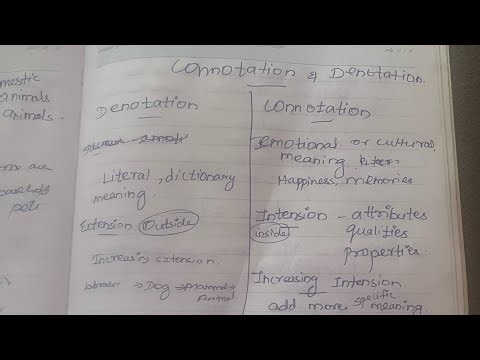 mestic
animals
animals.
are
pets
Connotation & Denotation.
Denotation
Literal, dictionary
meaning.
Extension Outside
Increasing extension.
labrador → Dog → Mammal →
Animal
Connotation
Emotional or cultural
meaning
Happiness, memories
Intension - attributes
inside qualities
properties.
Increasing Intension
add more specific meaning.